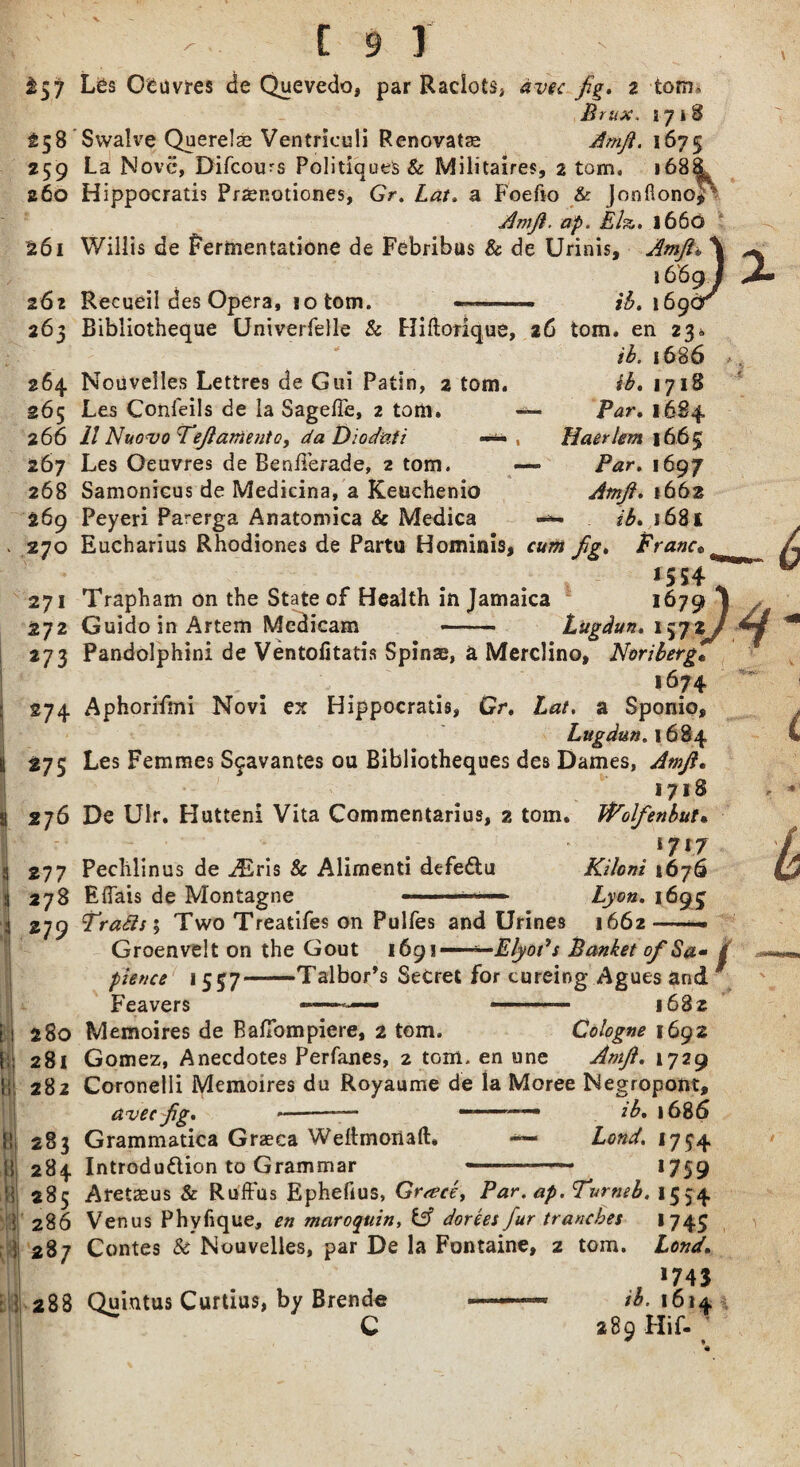 [ 9 ]
257 Les Oeuvres de Quevedo, par Raclots, avec fig. 2 tom.
Brux. 1718
258 Swalve Querelæ Ventriculi Renovatæ Amſt. 1675
259 La Nove, Diſcours Politiques & Militaires, 2 tom. 168
260 Hippocratis Prænotiones, Gr. Lat. a Foeſio & Jonſtono,
Amſt. ap. Elz. 1660
261 Willis de Fermentatione de Febribus & de Urinis, Amſt.
1669 2
262 Recueil des Opera, 10 tom. —— ib. 1690
263 Bibliotheque Univerſelle & Hiſtorique, 26 tom. en 23.
ib. 1686
264 Nouvelles Lettres de Gui Patin, 2 tom. ib. 1718
265 Les Conſeils de la Sageſſe, 2 tom. — Par. 1684
266 Il Nuovo Teſtamento, da Diodati — Haerlem 1665
267 Les Oeuvres de Benſſerade, 2 tom. — Par. 1697
268 Samonicus de Medicina, a Keuchenio Amſt. 1662
269 Peyeri Parerga Anatomica & Medica — ib. 1681
270 Eucharius Rhodiones de Partu Hominis, cum fig. Franc. 6
1554
271 Trapham on the State of Health in Jamaica 1679
272 Guido in Artem Medicam —— Lugdun. 1572 4
273 Pandolphini de Ventoſitatis Spinæ, a Merclino, Noriberg.
1674
274 Aphoriſmi Novi ex Hippocratis, Gr. Lat. a Sponio,
Lugdun. 1684
275 Les Femmes Sçavantes ou Bibliotheques des Dames, Amſt.
1718
276 De Ulr. Hutteni Vita Commentarius, 2 tom. Wolfenbut.
1717
277 Pechlinus de Æris & Alimenti defectu Kiloni 1676
278 Eſſais de Montagne —— Lyon. 1695
279 Tracts; Two Treatiſes on Pulſes and Urines 1662 ——
Groenvelt on the Gout 1691 —— Elyot's Banket of Sa-
pience 1557 —— Talbor's Secret for cureing Agues and
Feavers —— —— 1682
280 Memoires de Baſſompiere, 2 tom. Cologne 1692
281 Gomez, Anecdotes Perſanes, 2 tom. en une Amſt. 1729
282 Coronelli Memoires du Royaume de la Moree Negropont,
avec fig. —— —— ib. 1686
283 Grammatica Græca Weſtmonaſt. — Lond. 1754
284 Introduction to Grammar —— 1759
285 Aretæus & Ruffus Epheſius, Græcé, Par. ap. Turneb. 1554
286 Venus Phyſique, en maroquin, & dorées ſur tranches 1745
287 Contes & Nouvelles, par De la Fontaine, 2 tom. Lond.
1743
288 Quintus Curtius, by Brende —— ib. 1614
C 289 Hiſ-